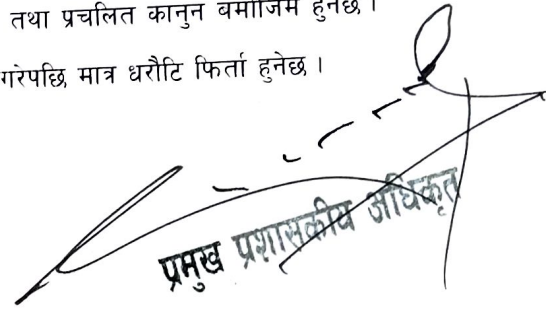 तथा प्रचलित कानुन बमोजिम हुनेछ ।
गरेपछि मात्र धरौटि फिर्ता हुनेछ ।
प्रमुख प्रशासकीय अधिकृत